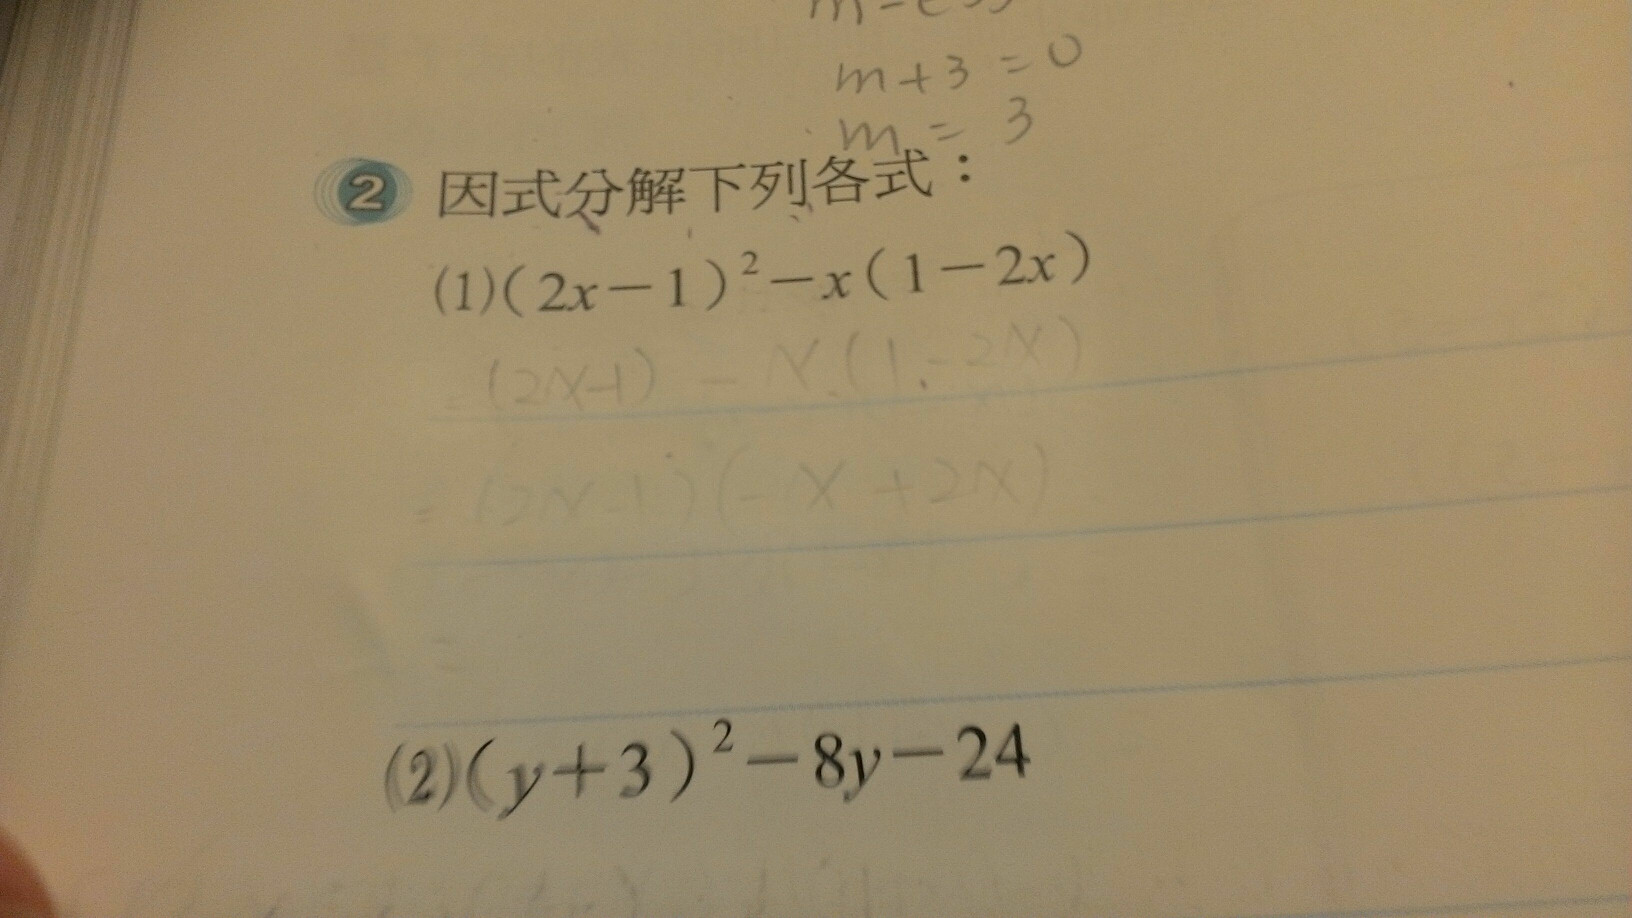 m + 3 = 0
m = 3
2 因式分解下列各式：
(1)(2x－1)²－x(1－2x)
= (2x-1) - x(1-2x)
= (2x-1)(-x+2x)
=
(2)(y＋3)²－8y－24